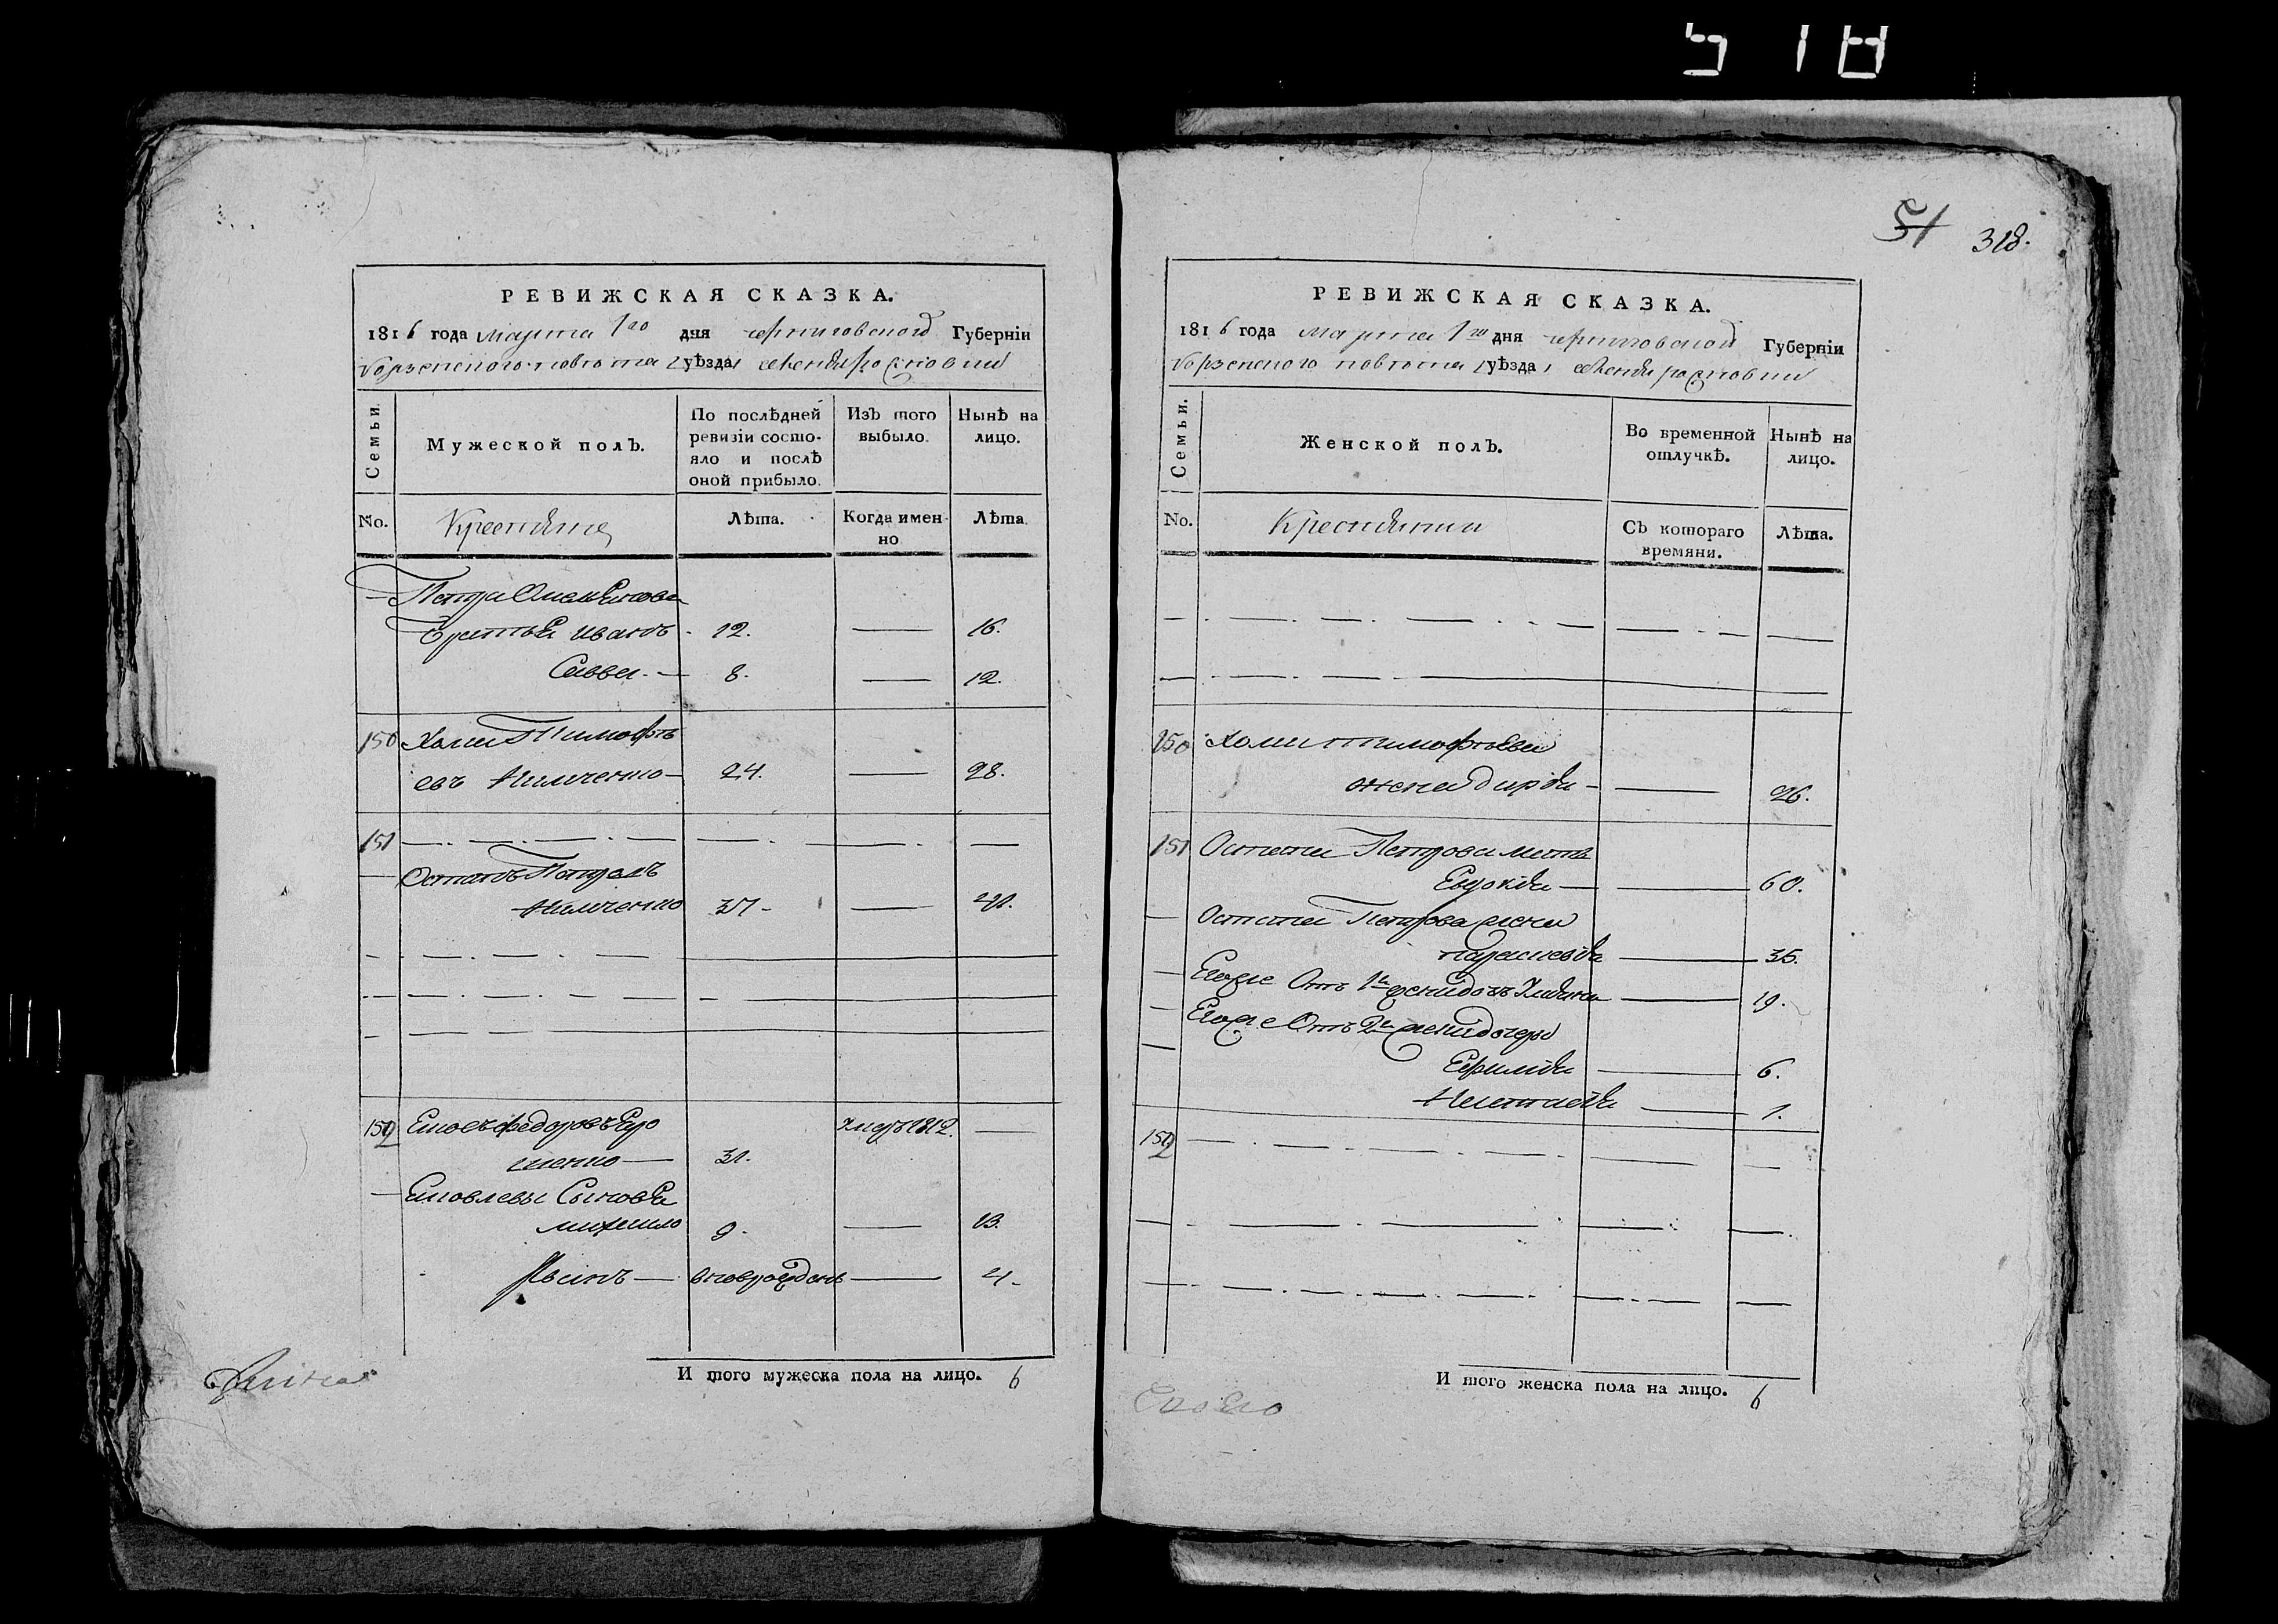 518
РЕВИЖСКАЯ СКАЗКА.
1816 года марта 1го дня черниговской Губерніи
борзенского повета уѣзда
Семьи.
Мужеской полъ.
По послѣдней ревизіи состо-
яло и послѣ
оной прибыло.
Изъ того
выбыло.
Нынѣ на
лицо.
No.
Крестьяне
Лѣта.
Когда имен
но
Лѣта
Петра
братья иванъ 12. — 16.
Савва. — 8. — 12.
150 Хома Тимофѣ
евъ 24. — 28.
151
Остапъ Петровъ
37 —
152 Яковъ федоровъ
умеръ 1812. —
шенко — 31.
Яковлевы Сыновья
михайло 9. — 13.
вновьрожденъ — 4.
И того мужеска пола на лицо. 6
51 318.
РЕВИЖСКАЯ СКАЗКА.
1816 года марта 1го дня черниговской Губерніи
борзенского повета уѣзда
Семьи.
Женской полъ.
Во временной
отлучкѣ.
Нынѣ на
лицо.
No.
Крестьянки
Съ котораго
времяни.
Лѣта.
150 Хомы тимофѣева
жена дарья — 26.
151 Остапа Петрова мать
Евдокія — 60.
Остапа Петрова жена
параскевія — 35.
Егоже Отъ 1й жены дочь Ульяна — 19.
Егоже Отъ 2й жены дочери
Ефимія — 6.
Наталія — 1.
152
И того женска пола на лицо. 6